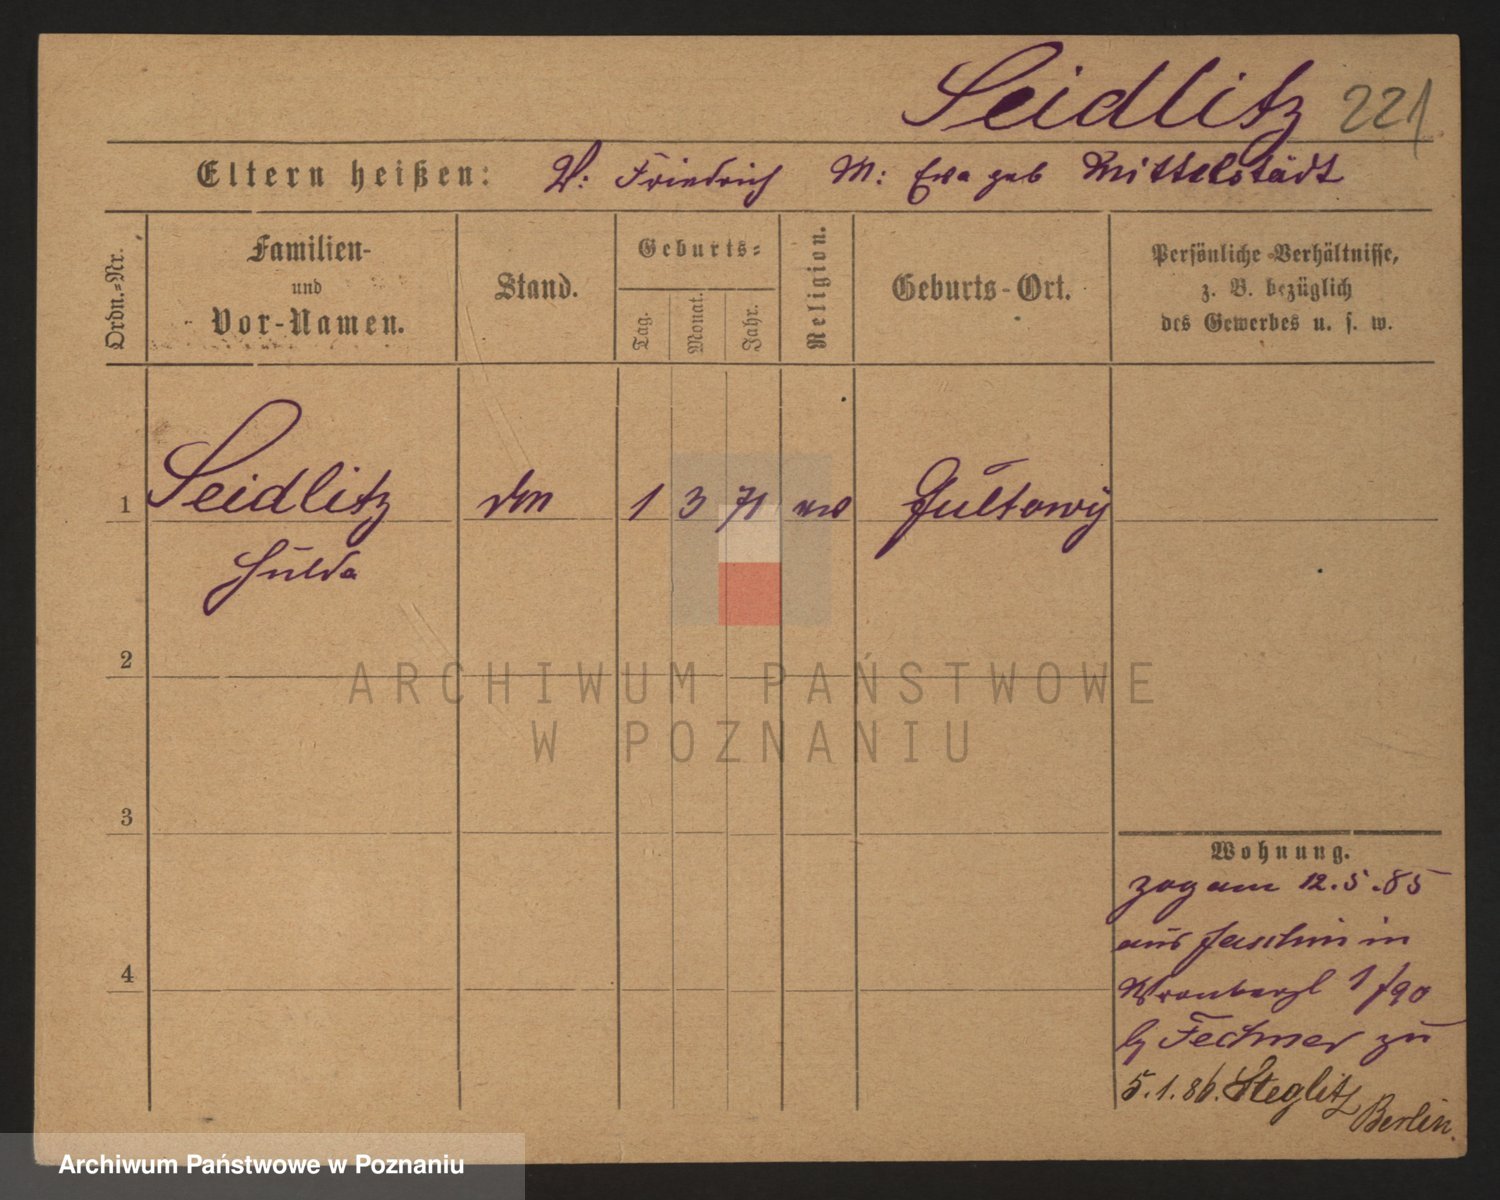 Seidlitz 221
Eltern heißen: V: Friedrich M: Eva geb Mittelstädt
Ordn.-Nr.
Familien-
und
Vor-Namen.
Stand.
Geburts-
Tag.
Monat.
Jahr.
Religion.
Geburts-Ort.
Persönliche Verhältnisse,
z. B. bezüglich
des Gewerbes u. s. w.
1 Seidlitz 1 3 71 Gultowy
Hulda
2
3
4
Wohnung.
zog am 12.5.85
aus in
1/90
Fechner zu
5.1.86. Steglitz
Berlin.
ARCHIWUM PAŃSTWOWE
W POZNANIU
Archiwum Państwowe w Poznaniu